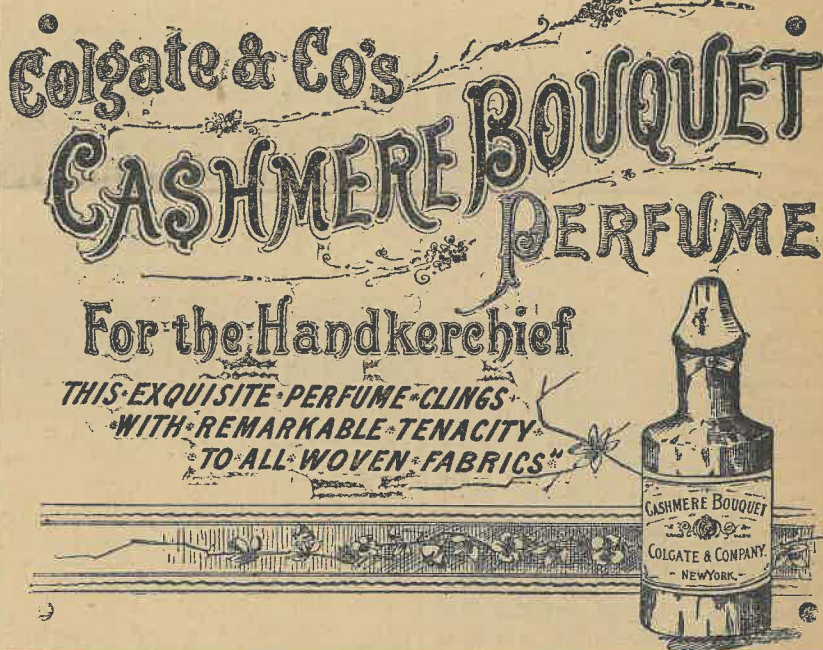 Colgate & Co's
CASHMERE BOUQUET
PERFUME
For the Handkerchief
THIS EXQUISITE PERFUME CLINGS
WITH REMARKABLE TENACITY
TO ALL WOVEN FABRICS"
CASHMERE BOUQUET
TRADE MARK
COLGATE & COMPANY.
NEW YORK.